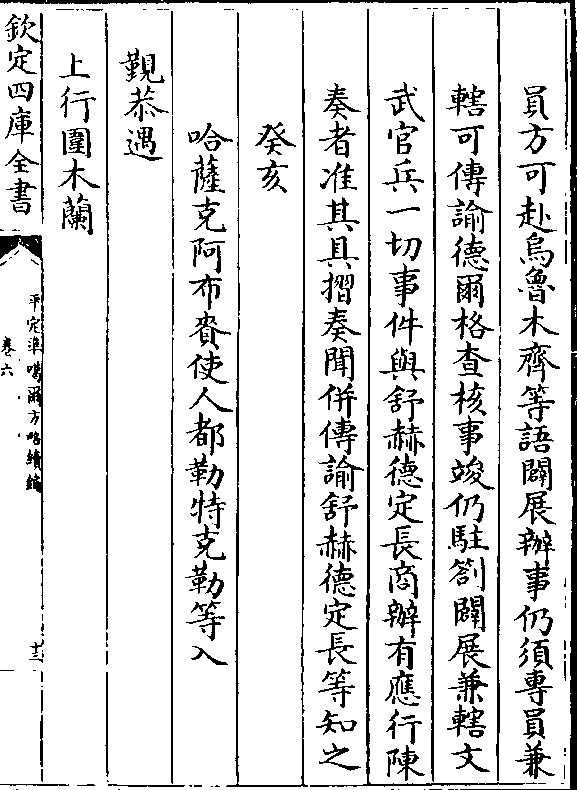 員方可赴烏魯木齊等語闢展辦事仍須專員兼
轄可傳諭德爾格查核事竣仍駐劄闢展兼轄文
武官兵一切事件與舒赫德定長商辦有應行陳
奏者准其具摺奏聞併傳諭舒赫德定長等知之
癸亥
哈薩克阿布賚使人都勒特克勒等入
覲恭遇
上行圍木蘭
欽定四庫全書
平定準噶爾方略續編
卷六
十三